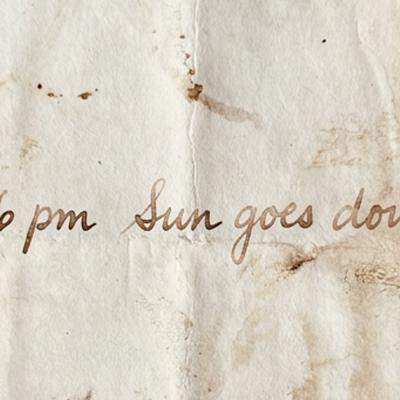 6 pm Sun goes